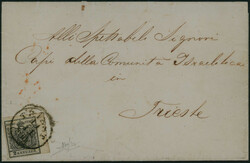 Allo Spettabili Signori
Capi della Comunità Israelitica
in
Trieste